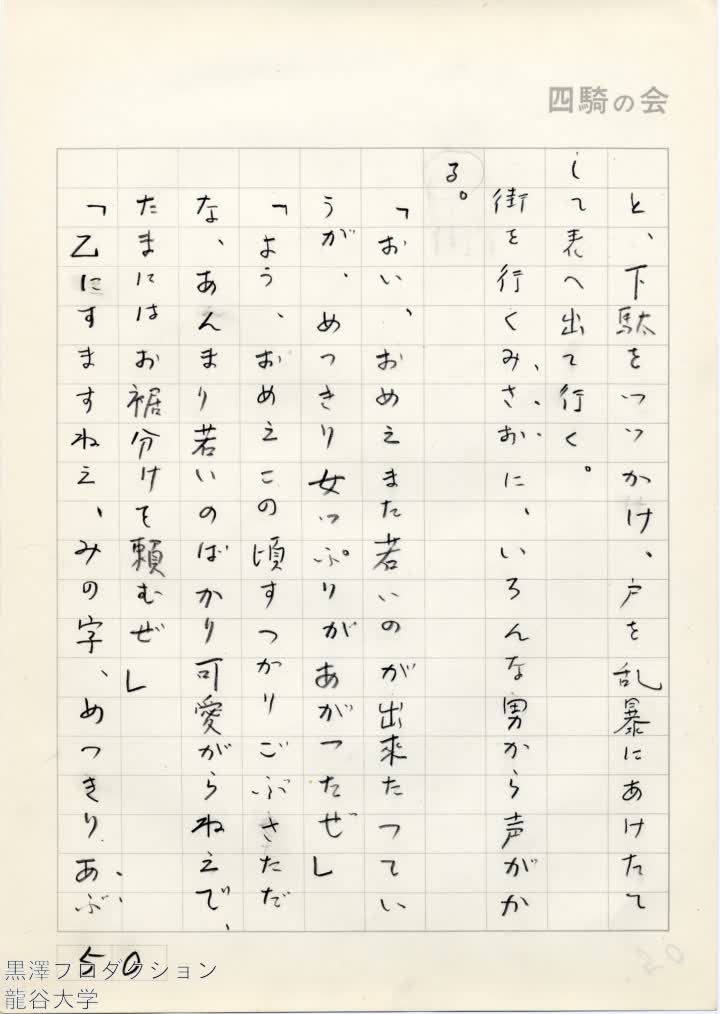 四騎の会
と、下駄をつつかけ、戸を乱暴にあけたて
して表へ出て行く。
街を行くみさおに、いろんな男から声がか
る。
「おい、おめえまた若いのが出来たつてい
うが、めつきり女つぷりがあがつたぜ」
「よう、おめえこの頃すつかりごぶさただ
な、あんまり若いのばかり可愛がらねえで、
たまにはお裾分けを頼むぜ」
「乙にすますねえ、みの字、めつきりあぶ
50
黒澤プロダクション
龍谷大学